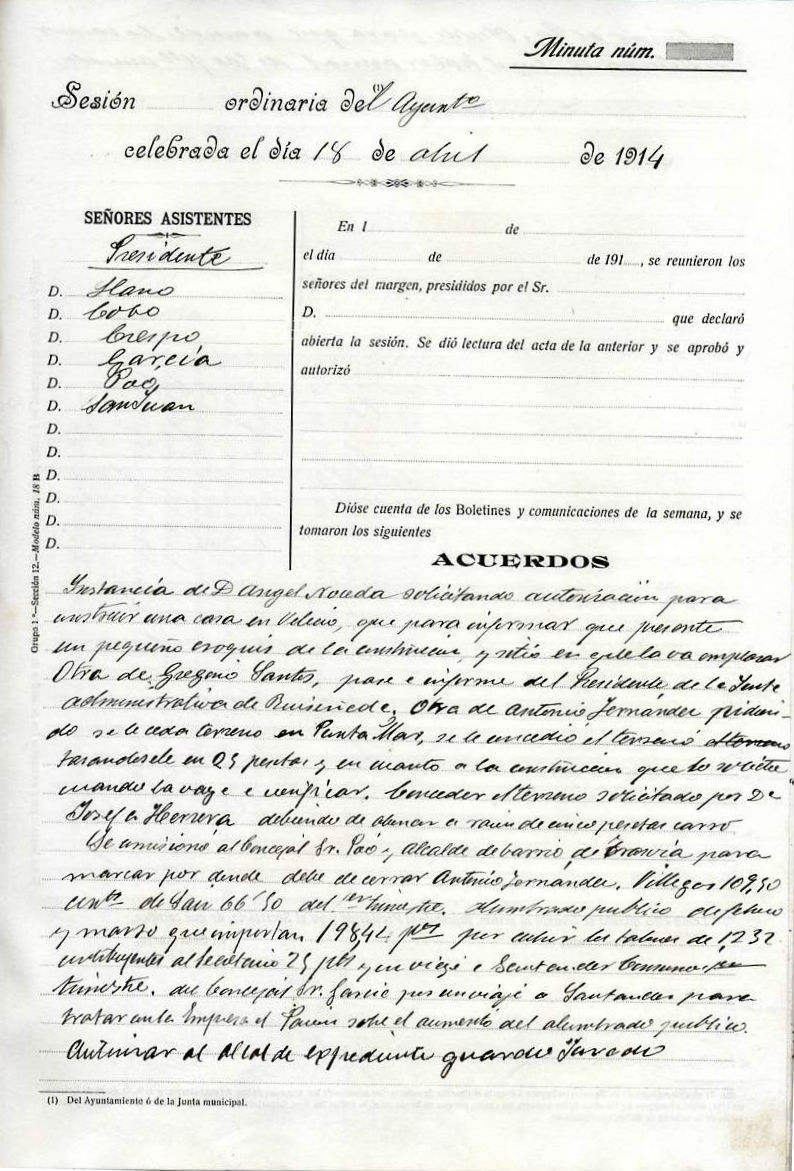 Minuta núm.
Sesión ordinaria del (1) Ayunto
celebrada el día 18 de abril de 1914
SEÑORES ASISTENTES
Presidente
D. Llano
D. Cobo
D. Crespo
D. García
D. Poo
D. San Juan
D.
D.
D.
D.
D.
D.
En l de
el día de de 191, se reunieron los
señores del margen, presididos por el Sr.
D. que declaró
abierta la sesión. Se dió lectura del acta de la anterior y se aprobó y
autorizó
Dióse cuenta de los Boletines y comunicaciones de la semana, y se
tomaron los siguientes
ACUERDOS
Instancia de D Angel Noceda solicitando autorización para
construir una casa en, que para informar que presente
un pequeño croquis de la construcción, y sitio en que la va emplazar
Otra de Gregorio Santos, pase e informe del Presidente de la Junta
administrativa de. Otra de Antonio Fernandez pidien-
do se le ceda terreno en Punta Mar, se le concedio el terreno
tasandosele en 25 pesetas y en cuanto a la construccion que lo solicite
cuando la vaya e verificar. Conceder el terreno solicitado por Da
Josefa Herrera debiendo de abonar a razon de cinco pesetas carro
Se comisionó al Concejal Sr. Poo y Alcalde de barrio de para
marcar por donde debe de cerrar Antonio Fernandez. Villegas 109,50
de 66'50 del 1er trimestre. Alumbrado publico de febrero
y marzo que importan 19842 pts por cubrir los talones de 1232
contribuyentes al Secretario 25 pts y un viaje e Santander Consumos
trimestre. al Concejal Sr. Garcia por un viaje a Santander para
tratar con la Empresa el sobre el aumento del alumbrado publico.
Autorizar al Alcalde expediente guarda Jurado
Grupo 1.º—Sección 12.—Modelo núm. 18 B
(1) Del Ayuntamiento ó de la Junta municipal.